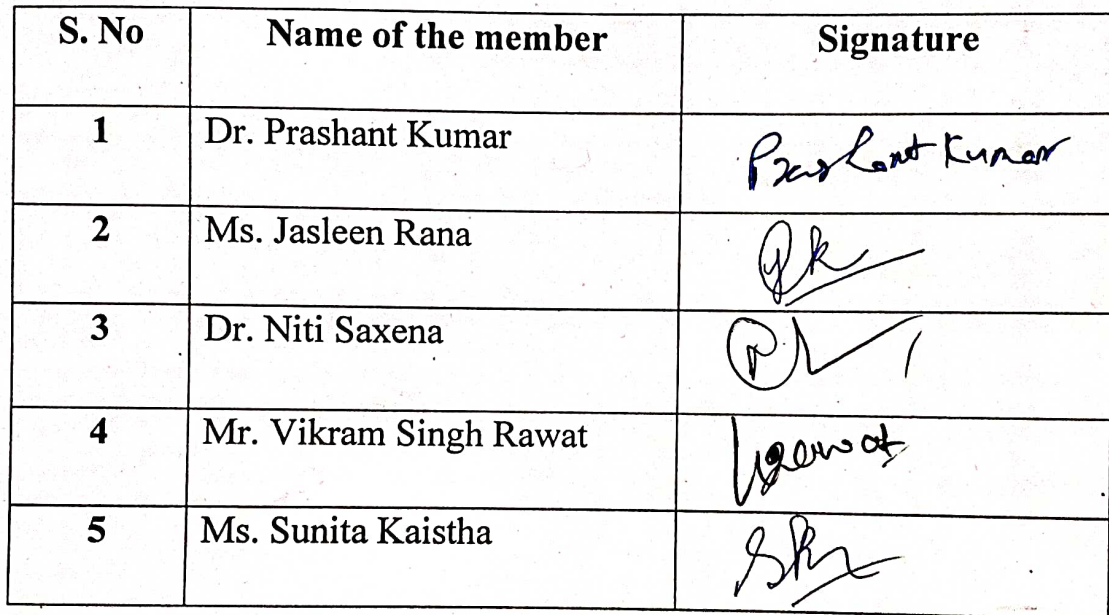 S. No Name of the member Signature
1 Dr. Prashant Kumar Prashant Kumar
2 Ms. Jasleen Rana
3 Dr. Niti Saxena
4 Mr. Vikram Singh Rawat
5 Ms. Sunita Kaistha